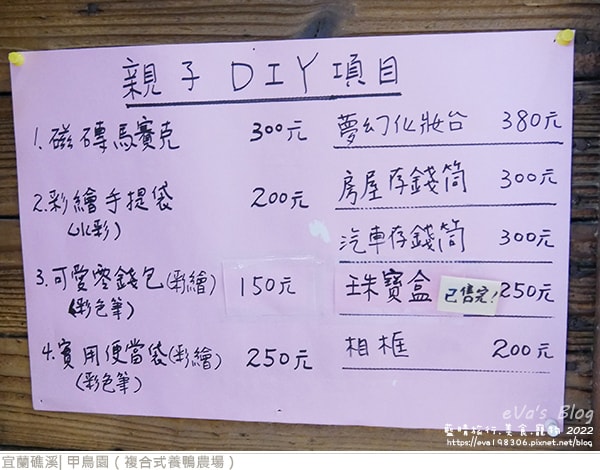 親子DIY項目
1.磁磚馬賽克 300元
2.彩繪手提袋 200元
(水彩)
3.可愛零錢包(彩繪) 150元
(彩色筆)
4.實用便當袋(彩繪) 250元
(彩色筆)
夢幻化妝台 380元
房屋存錢筒 300元
汽車存錢筒 300元
珠寶盒 已售完! 250元
相框 200元
eVa's Blog
藍晴旅行.美食.寵物 2022
https://eva198306.pixnet.net/blog
宜蘭礁溪| 甲鳥園 ( 複合式養鴨農場 )